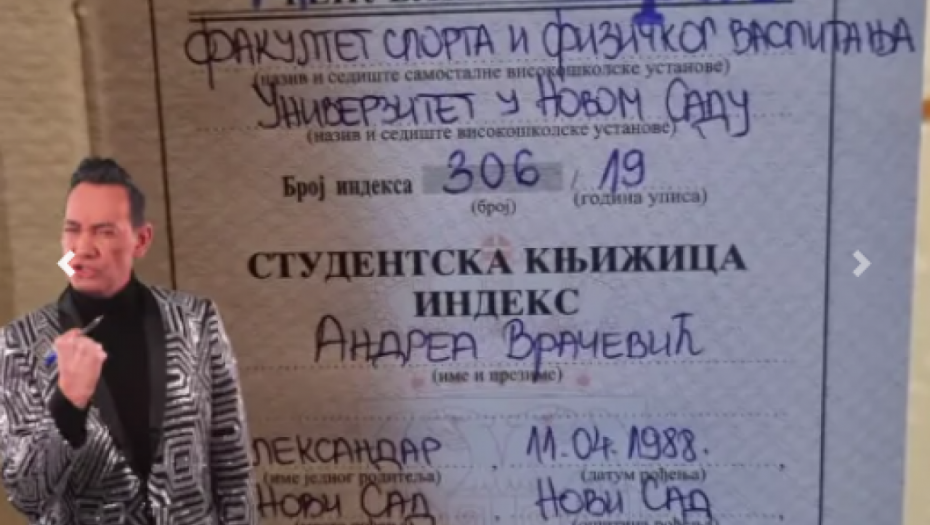 ФАКУЛТЕТ СПОРТА И ФИЗИЧКОГ ВАСПИТАЊА
(назив и седиште самосталне високошколске установе)
УНИВЕРЗИТЕТ У НОВОМ САДУ
(назив и седиште високошколске установе)
Број индекса 306 / 19
(број) (година уписа)
СТУДЕНТСКА КЊИЖИЦА
ИНДЕКС
АНДРЕА ВРАЧЕВИЋ
(име и презиме)
ЛЕКСАНДАР , 11.04.1988. ,
(име једног родитеља) (датум рођења)
НОВИ САД , НОВИ САД